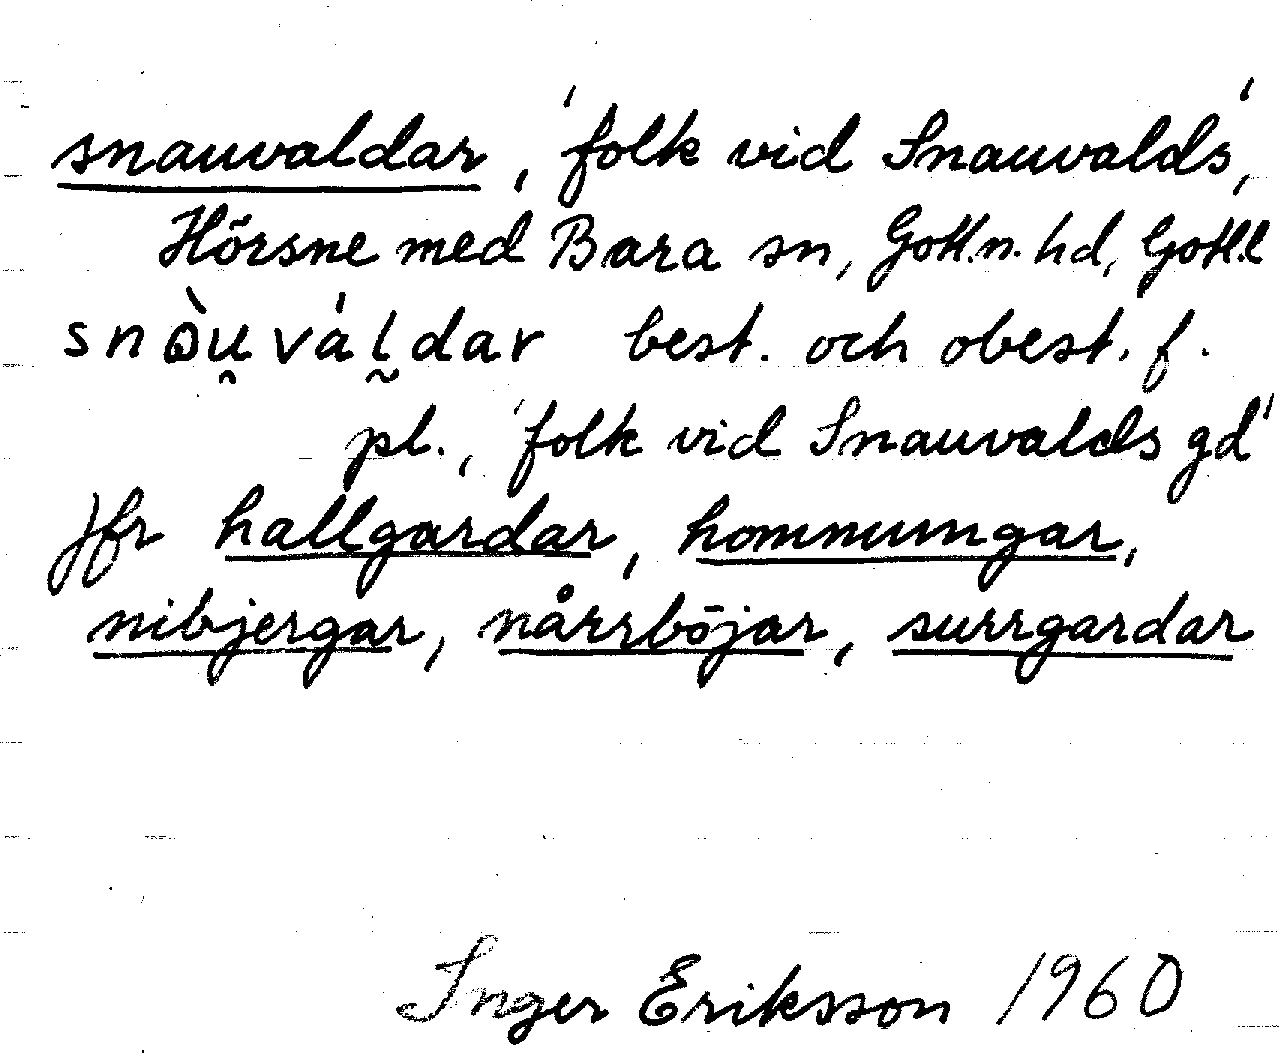 snauvaldar, 'folk vid Snauvalds',
Hörsne med Bara sn, Gotl.n. hd, Gotl.l
snòu̯váḷdar best. och obest. f.
pl., 'folk vid Snauvalds gd'
jfr hallgardar, hommungar,
nibjergar, nårrböjar, surrgardar
Inger Eriksson 1960